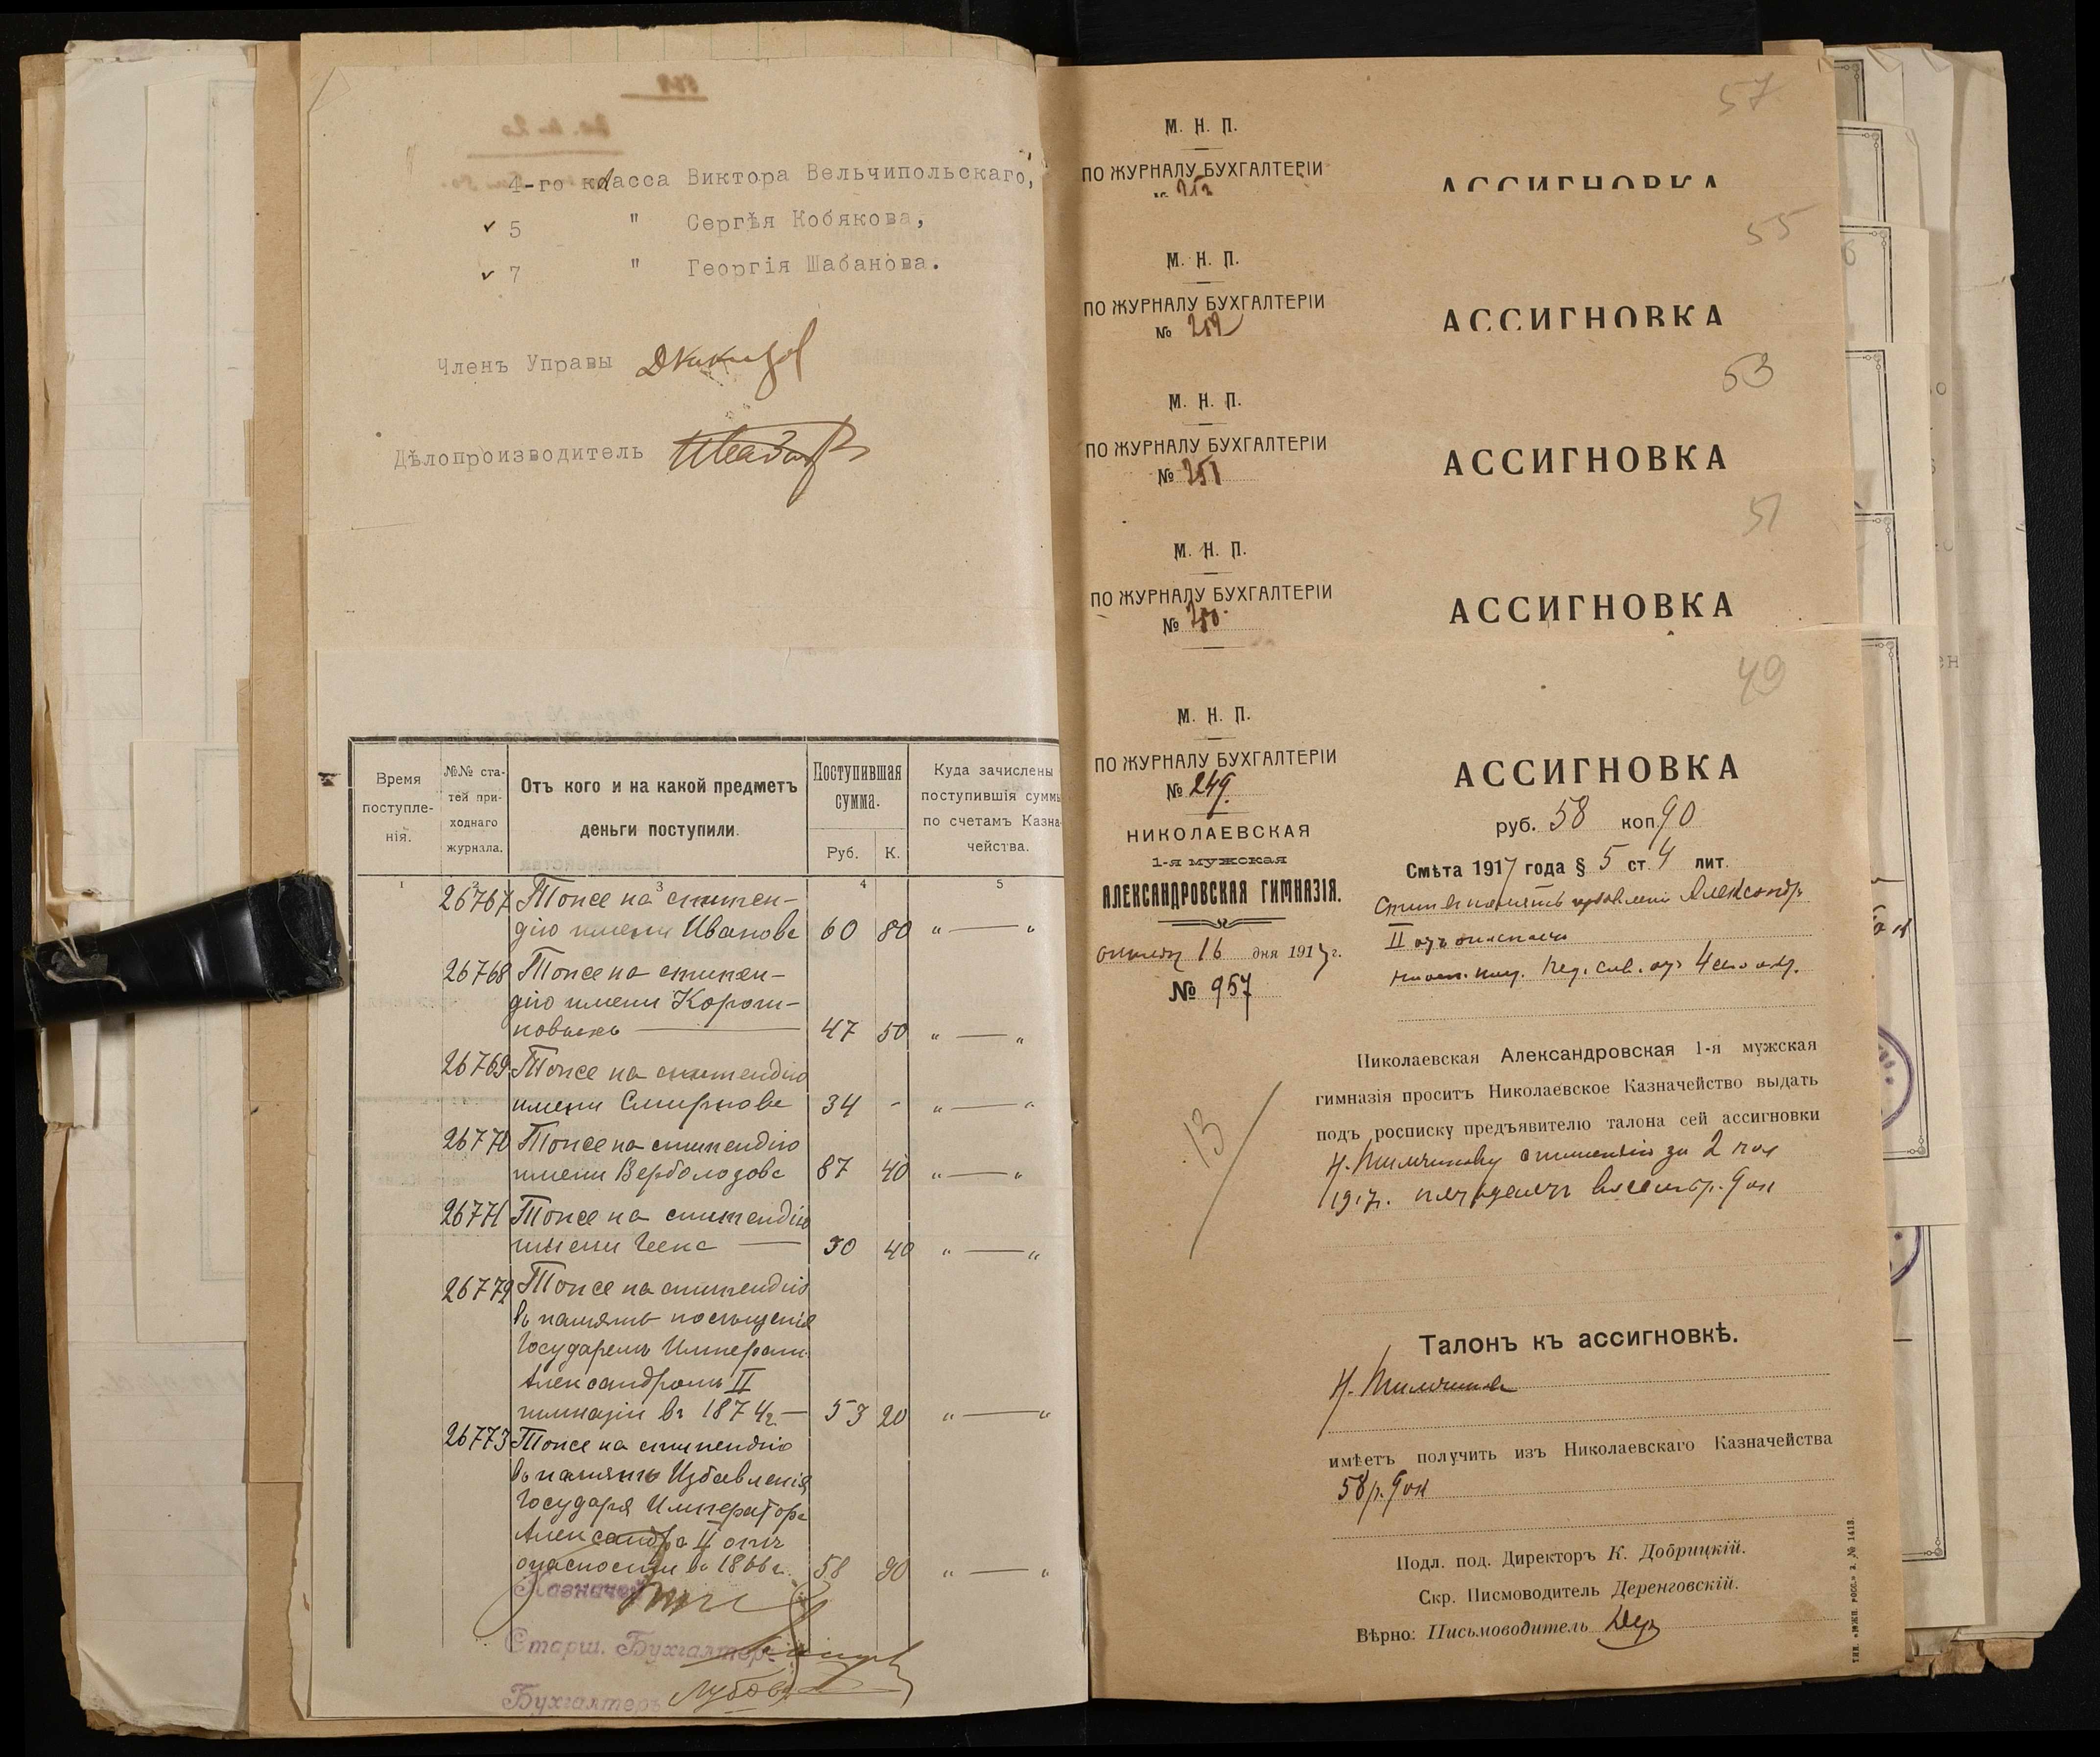 4-го класса Виктора Вельчипольскаго,
5 " Сергѣя Кобякова,
7 " Георгія Шабанова.
Членъ Управы
Дѣлопроизводитель
Время поступле-нія.
№№ ста-тей при-ходнаго журнала.
Отъ кого и на какой предметъ деньги поступили.
Поступившая сумма.
Руб. К.
Куда зачислены поступившія суммы по счетамъ Казна-чейства.
1 2 3 4 5
26767 Тоже на стипен-
дію имени Иванова 60 80 " — "
26768 Тоже на стипен-
дію имени
47 50 " — "
26769 Тоже на стипендію
имени Смирнова 34 - " — "
26770 Тоже на стипендію
имени Верболозова 87 40 " — "
26771 Тоже на стипендію
имени 30 40 " — "
26772 Тоже на стипендію
въ память посѣщенія
Государемъ Императ.
Александромъ II
гимназіи въ 1874 г. — 53 20 " — "
26773 Тоже на стипендію
въ память Избавленія
Государя Императора
Александра II отъ
опасности въ 1866 г. 58 90 " — "
Казначей
Старш. Бухгалтеръ
Бухгалтеръ
57
М. Н. П.
ПО ЖУРНАЛУ БУХГАЛТЕРІИ
АССИГНОВКА
55
М. Н. П.
ПО ЖУРНАЛУ БУХГАЛТЕРІИ
№ 252
АССИГНОВКА
53
М. Н. П.
ПО ЖУРНАЛУ БУХГАЛТЕРІИ
№ 251
АССИГНОВКА
51
М. Н. П.
ПО ЖУРНАЛУ БУХГАЛТЕРІИ
№ 250
АССИГНОВКА
49
М. Н. П.
ПО ЖУРНАЛУ БУХГАЛТЕРІИ
№ 249
НИКОЛАЕВСКАЯ
1-я мужская
АЛЕКСАНДРОВСКАЯ ГИМНАЗІЯ.
16 дня 1917 г.
№ 957
АССИГНОВКА
руб. 58 коп 90
Смѣта 1917 года § 5 ст. 4 лит.
Александр.
II
Николаевская Александровская 1-я мужская
гимназія проситъ Николаевское Казначейство выдать
подъ росписку предъявителю талона сей ассигновки
стипендію за 2 пол
1917 г. восемь р. 90 к
13
Талонъ къ ассигновкѣ.
имѣетъ получить изъ Николаевскаго Казначейства
58 р. 90 к
Подл. под. Директоръ К. Добрицкій.
Скр. Писмоводитель Деренговскій.
Вѣрно: Письмоводитель